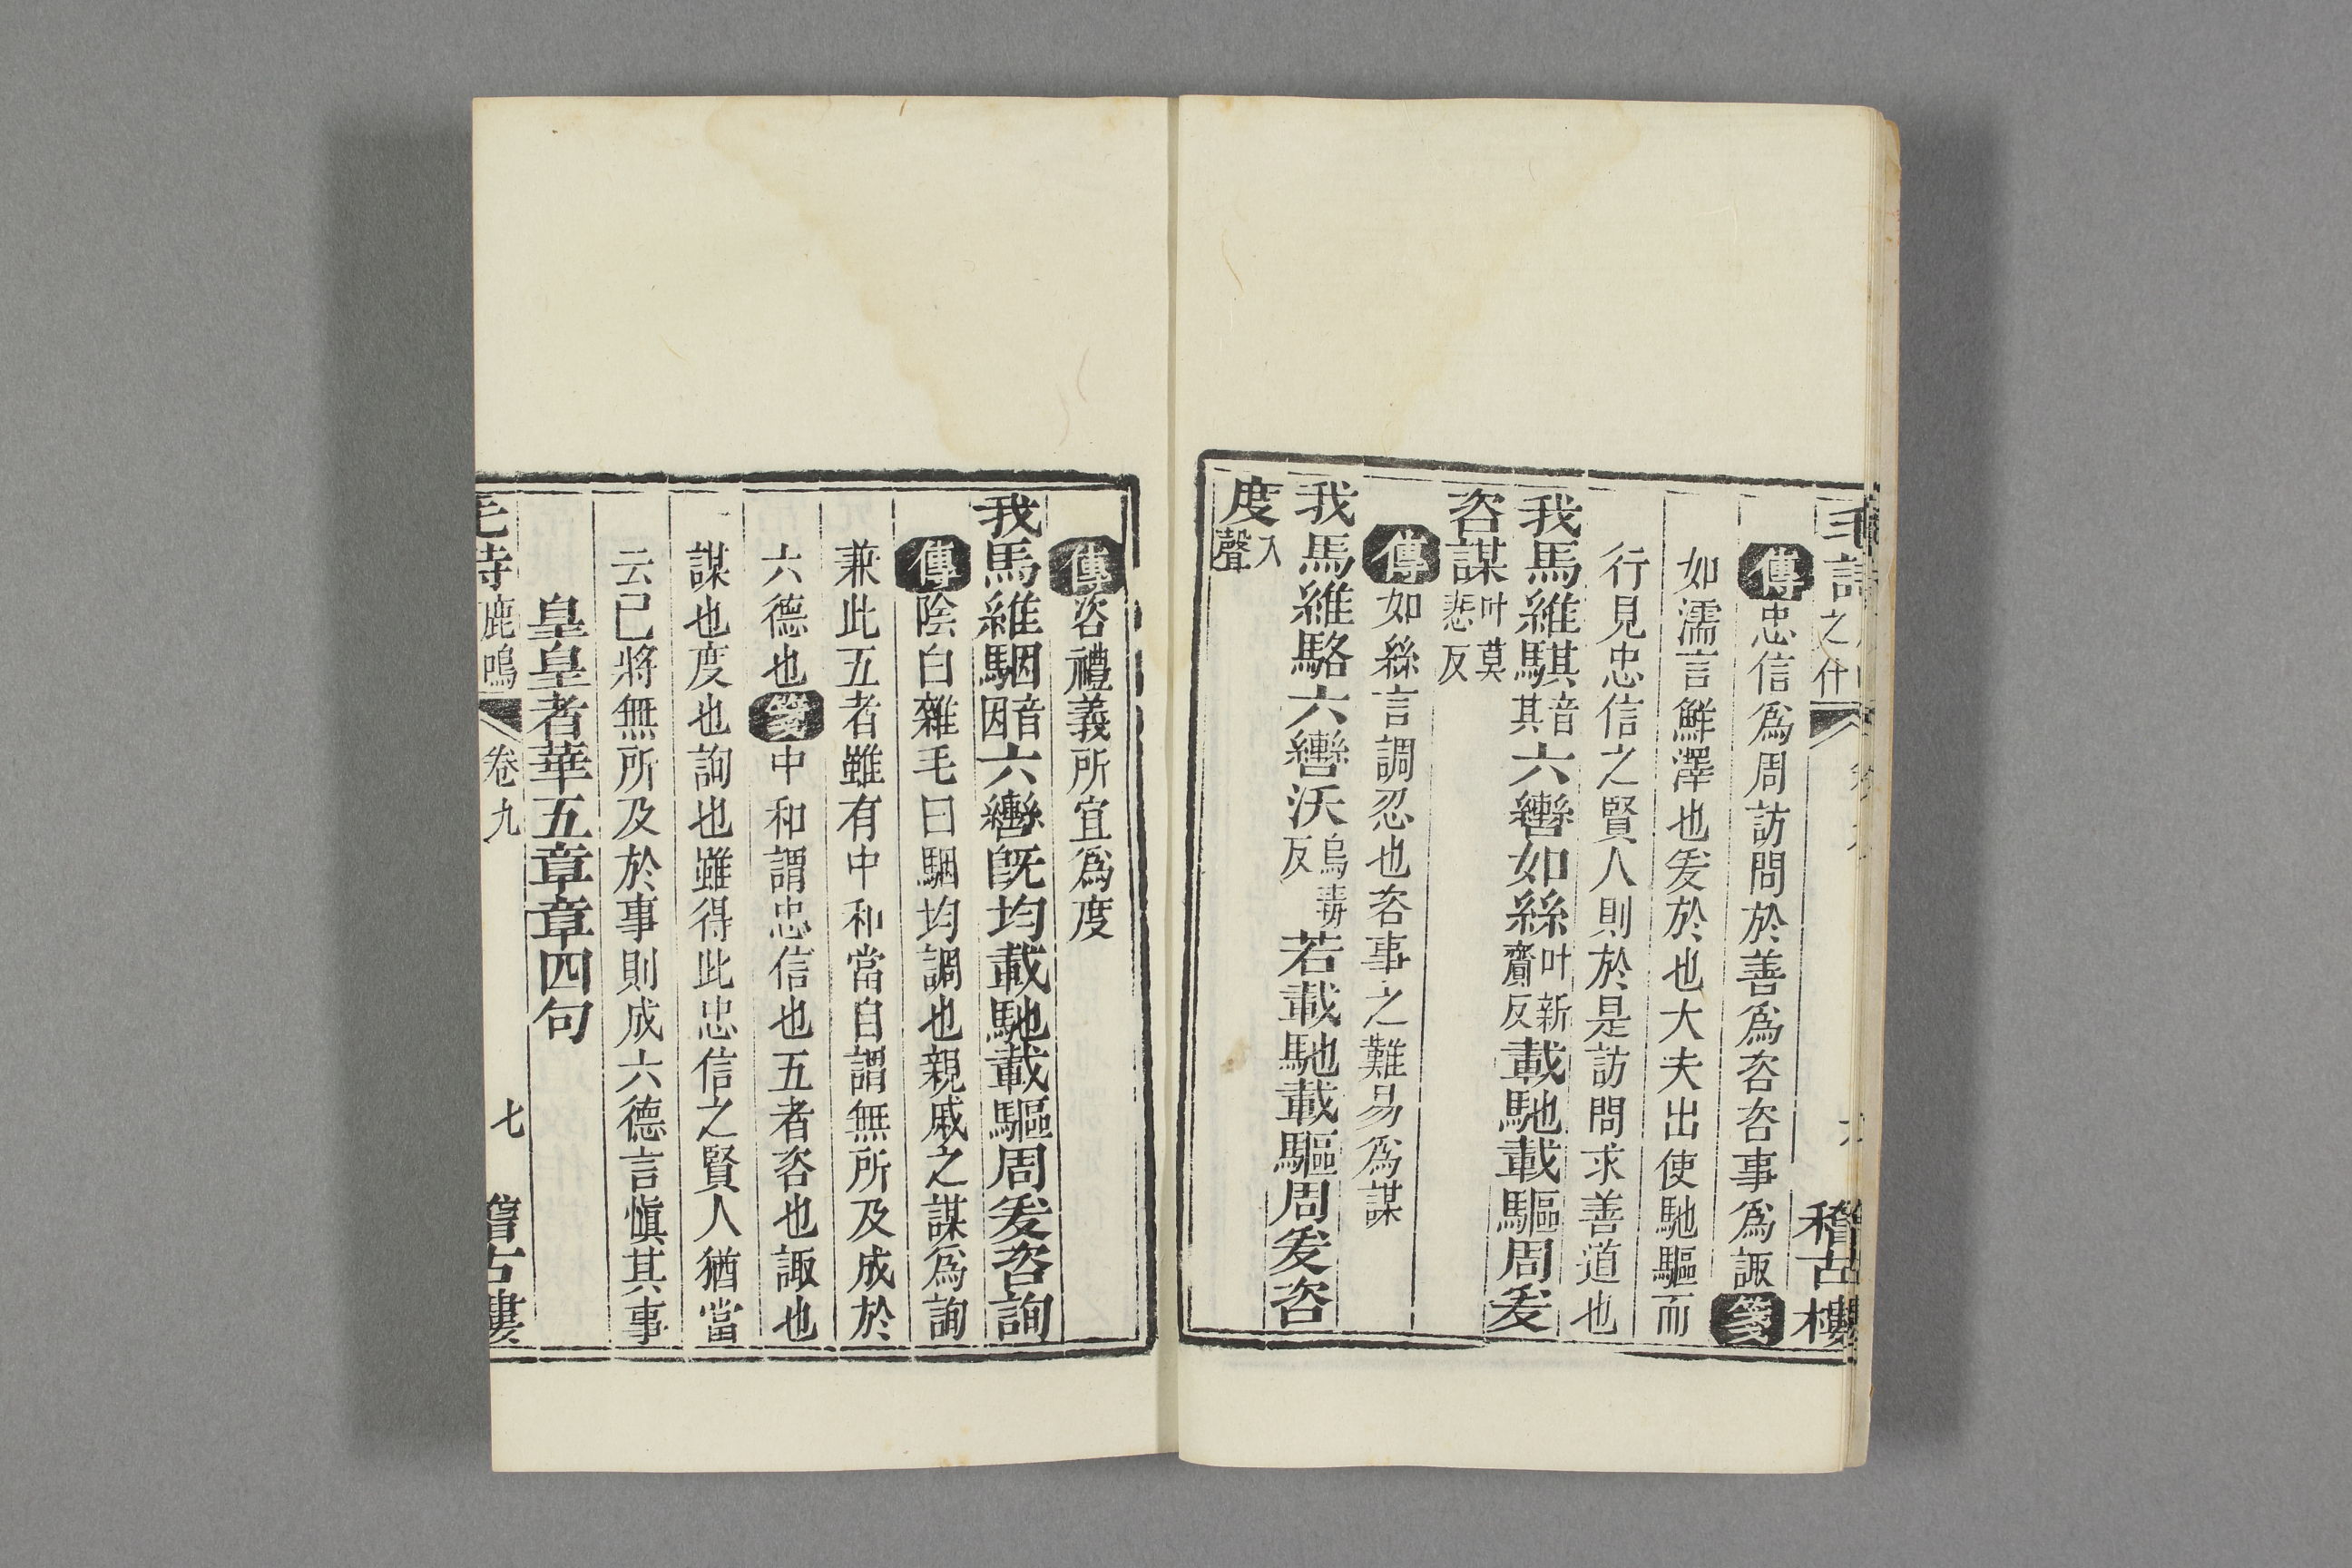 毛詩 之什 稽古樓
傳忠信爲周訪問於善爲咨咨事爲諏箋
如濡言鮮澤也爰於也大夫出使馳驅而
行見忠信之賢人則於是訪問求善道也
我馬維騏音其六轡如絲叶新齎反載馳載驅周爰
咨謀叶莫悲反
傳如絲言調忍也咨事之難易爲謀
我馬維駱六轡沃烏毒反若載馳載驅周爰咨
度入聲
傳咨禮義所宜爲度
我馬維駰音因六轡旣均載馳載驅周爰咨詢
傳陰白雜毛曰駰均調也親戚之謀爲詢
兼此五者雖有中和當自謂無所及成於
六德也箋中和謂忠信也五者咨也諏也
謀也度也詢也雖得此忠信之賢人猶當
云已將無所及於事則成六德言愼其事
皇皇者華五章章四句
毛詩 鹿鳴 卷九 七 稽古樓